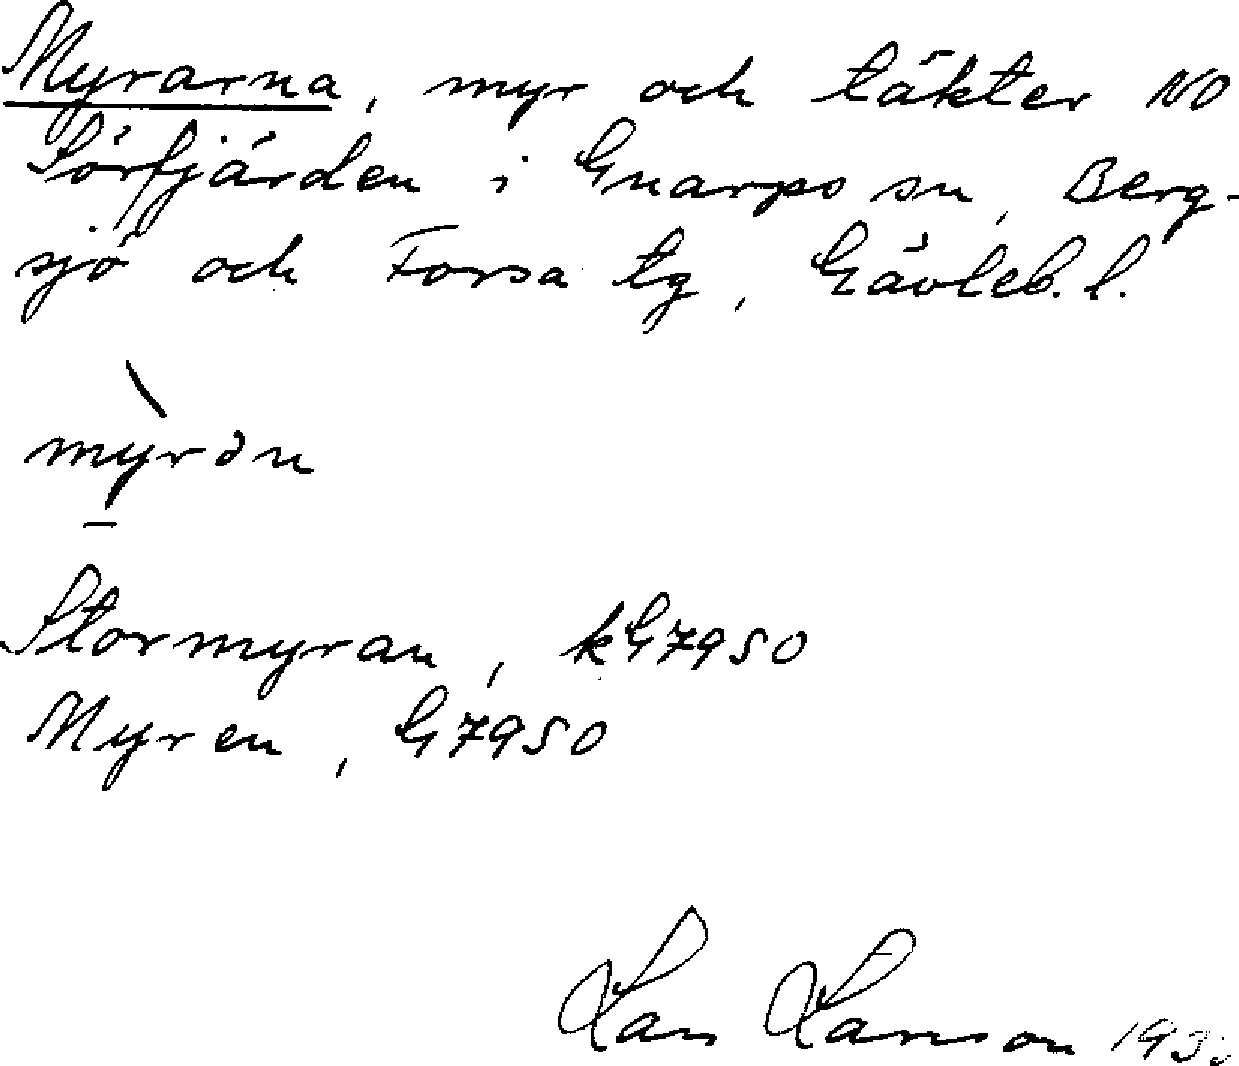 Myrarna, myr och täkter NO
Sörfjärden i Gnarps sn, Berg-
sjö och Forsa tg, Gävleb. l.
myrən
Stormyran, kG7950
Myren, G7950
Lars Larsson